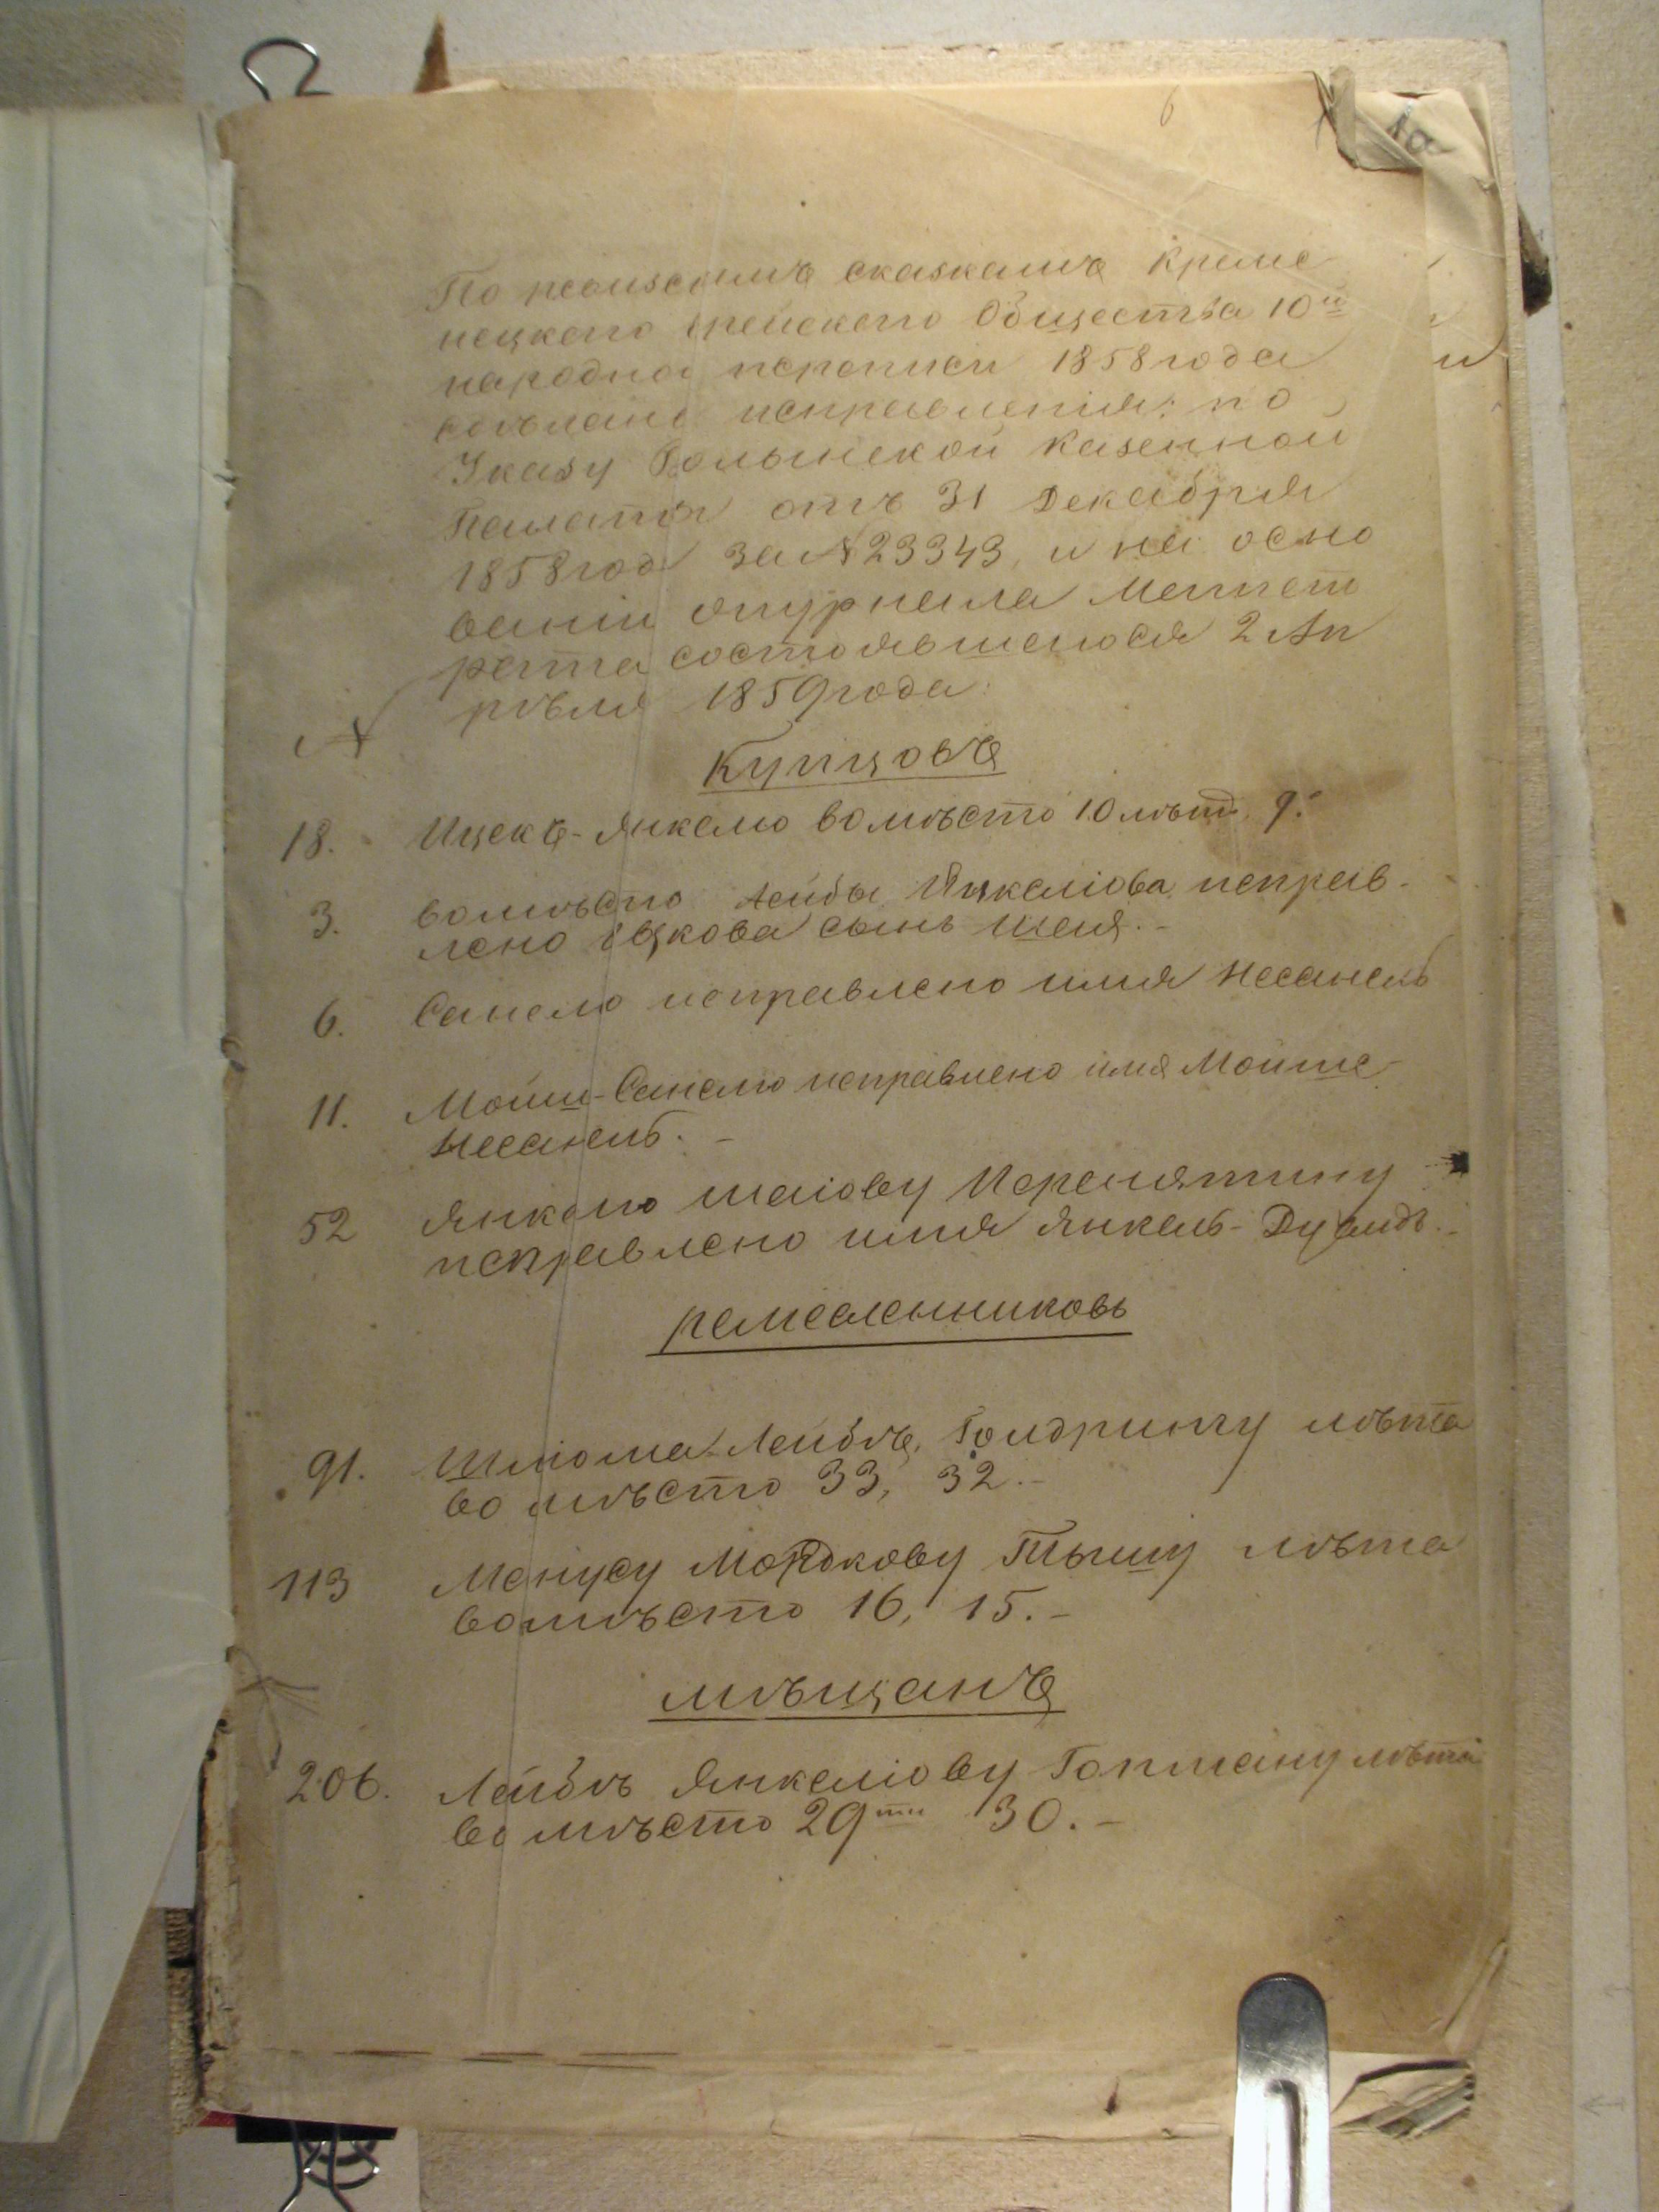 6
1а
По ревизскимъ сказкамъ Креме
нецкого еврейского Общества 10й
народной переписи 1858 года
сдѣланы исправленія: по
Указу Волынской Казенной
Палаты отъ 31 Декабря
1858 года за № 23343, и на осно
ваніи журнала
состоявшегося 2 Ап
рѣля 1859 года:
№
Купцовъ
18. Ицекъ-Янкелю вомѣсто 10 лѣтъ 9.
3. вомѣсто Лейбы Янкеліова исправ-
лено Ицкова сынъ Шея.-
6. Санелю исправлено имя Несанель
11. Мойши-Санелю исправлено имя Мойше-
Несанель.-
52 Янкелю Шаіову Перенятину
исправлено имя Янкель-Дувидъ.-
ремесленниковъ
91. Шліома-Лейбѣ, Голдрингу лѣта
вомѣсто 33, 32.-
113 Менусу Мордкову Тышу лѣта
вомѣсто 16, 15.-
мѣщанъ
206. Лейбѣ Янкеліову Гопману лѣта
вомѣсто 29ти 30.-